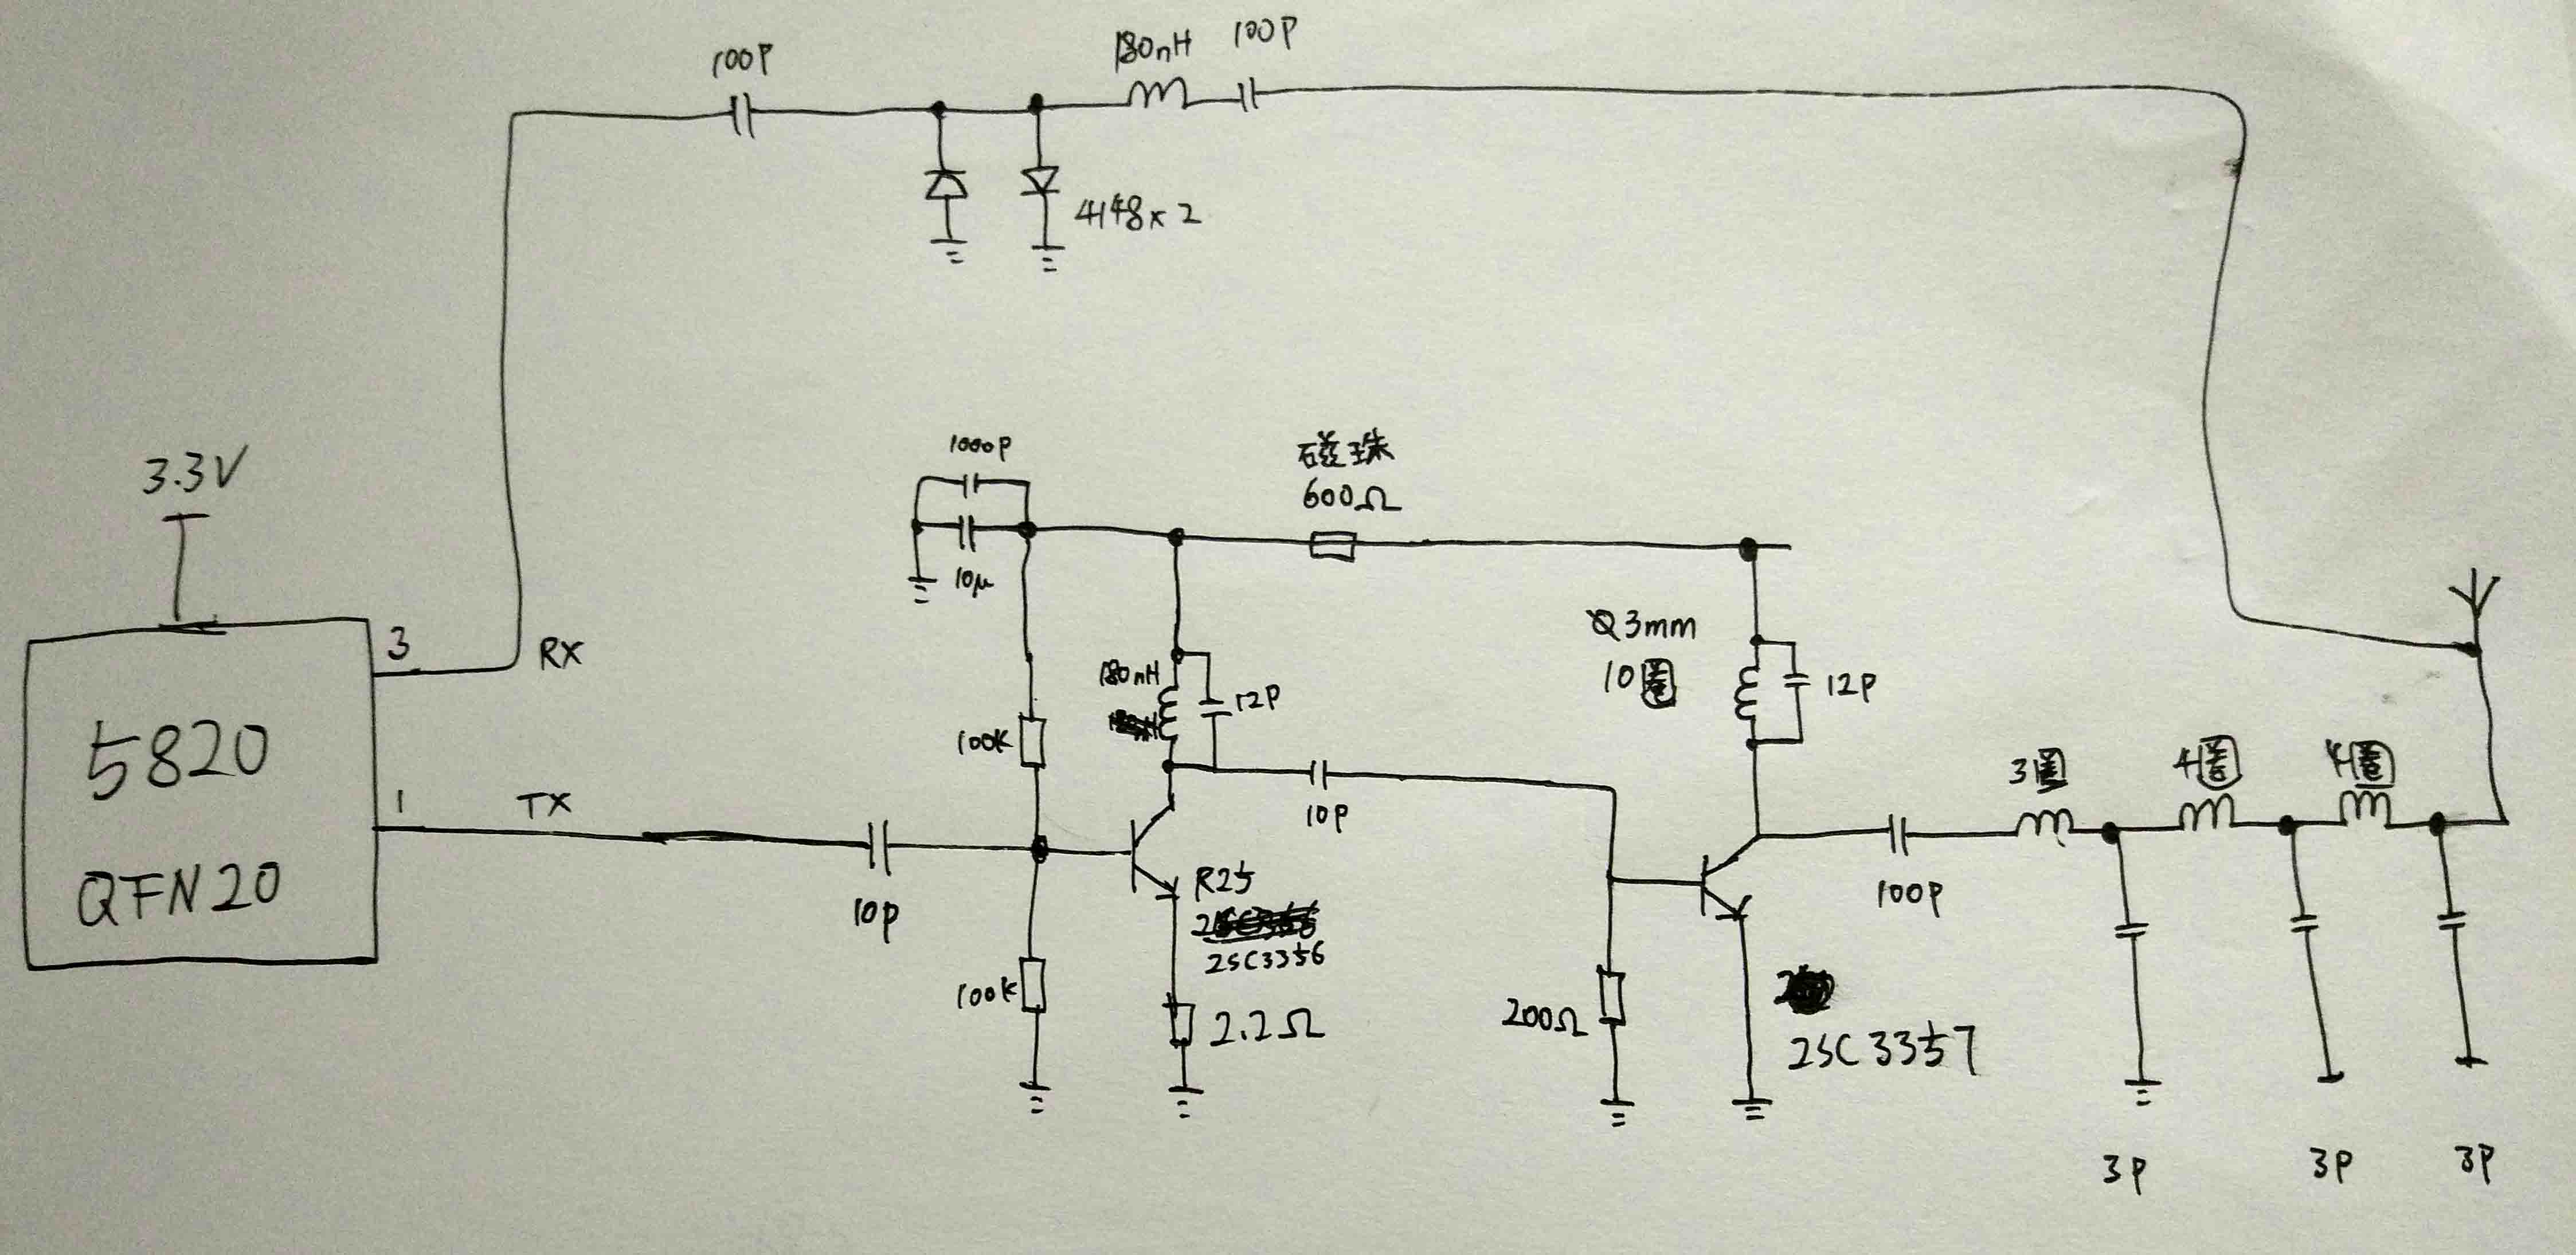 100P
180nH
100P
4148×2
3.3V
1000P
10μ
磁珠
600Ω
3
RX
5820
QFN20
1
TX
10P
100K
100K
180nH
12P
10P
R25
2SC3356
2.2Ω
Q3mm
10圈
12P
200Ω
2SC3357
100P
3圈
4圈
4圈
3P
3P
3P